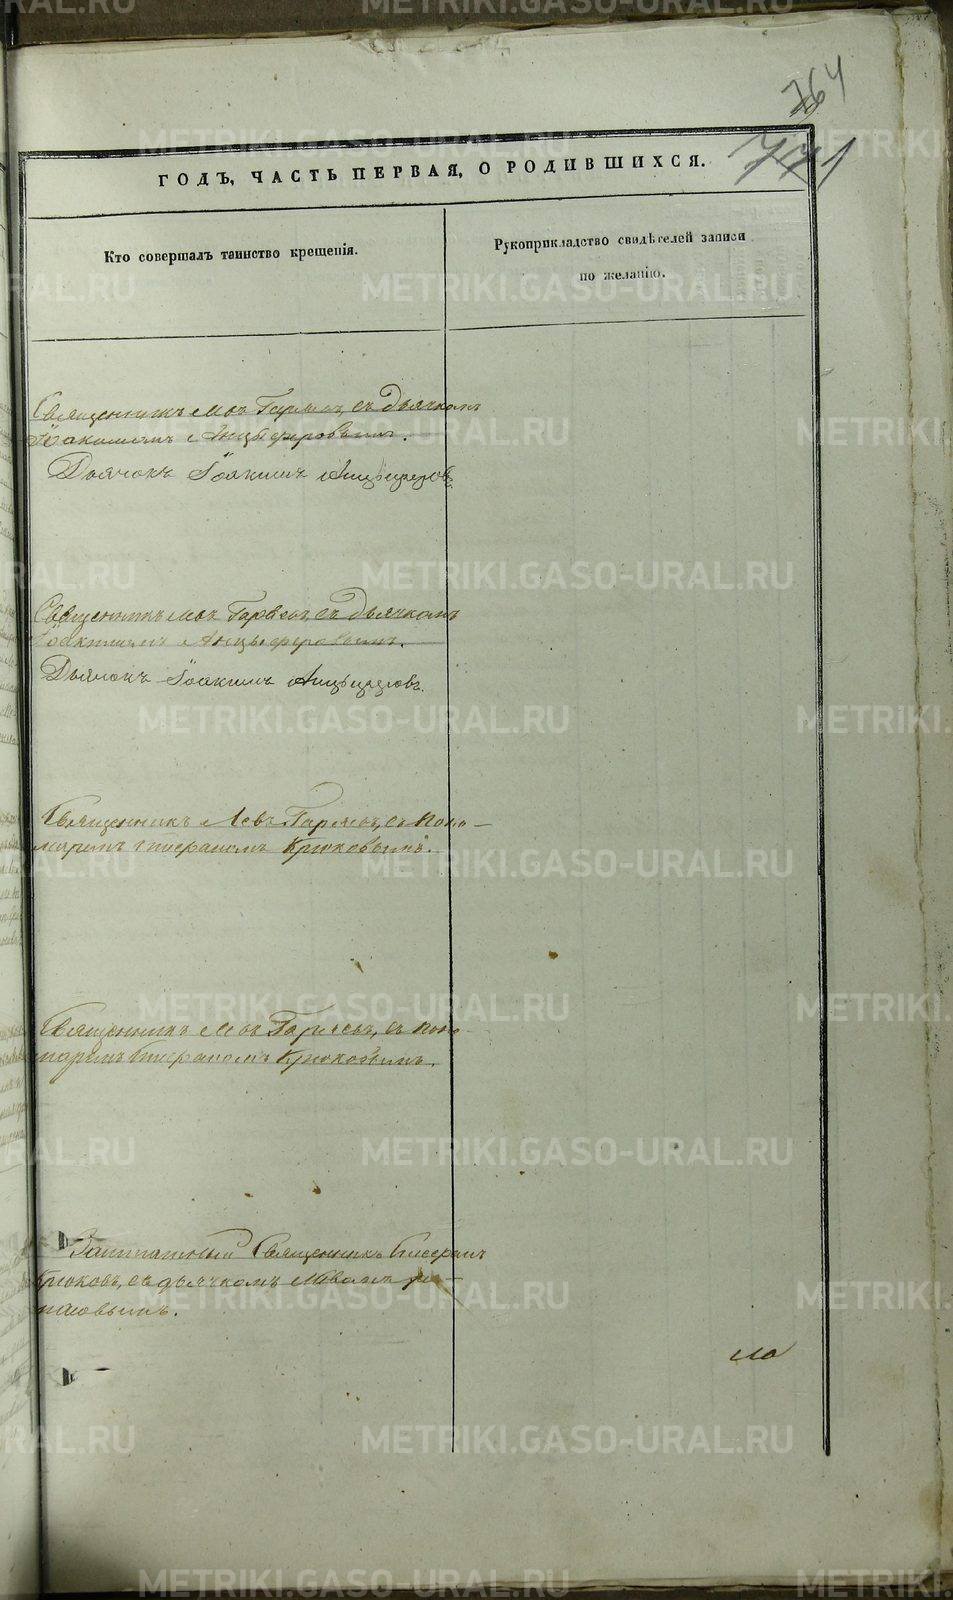 764
771
ГОДЪ, ЧАСТЬ ПЕРВАЯ, О РОДИВШИХСЯ.
Кто совершалъ таинство крещенія.
Рукоприкладство свидѣтелей записи
по желанію.
Священникъ Левъ Гаряевъ, съ Дьячкомъ
Іоакимомъ Анцыферовымъ.
Дьячокъ Іоакимъ Анцыферовъ.
Священникъ Левъ Гаряевъ, съ Дьячкомъ
Іоакимомъ Анцыферовымъ.
Дьячокъ Іоакимъ Анцыферовъ.
Священникъ Левъ Гаряевъ, съ поно-
маремъ Крюковымъ.
Священникъ Левъ Гаряевъ, съ поно-
маремъ Крюковымъ.
Заштатный Священникъ
Крюковъ, съ дьячкомъ
METRIKI.GASO-URAL.RU